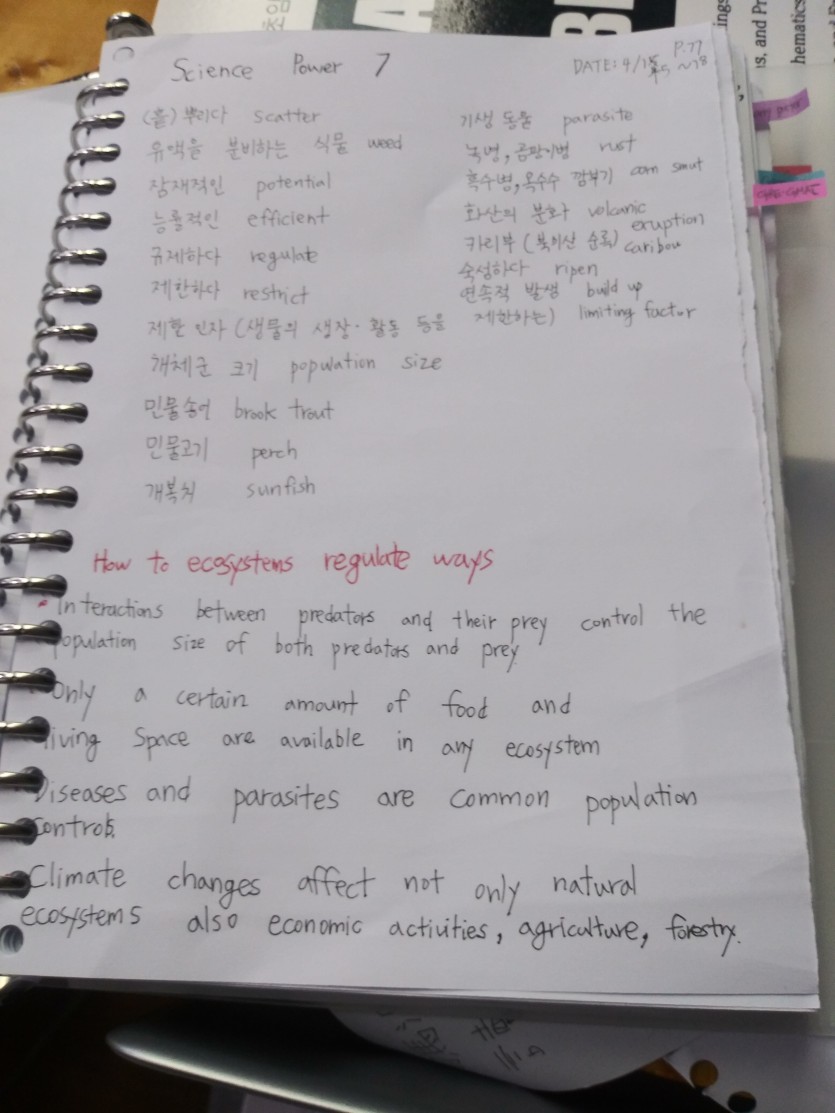 Science Power 7
P.77
DATE: 9/15
~78
(흩)뿌리다 scatter
유액을 분비하는 식물 weed
잠재적인 potential
능률적인 efficient
규제하다 regulate
제한하다 restrict
기생 동물 parasite
녹병, 곰팡이병 rust
흑수병, 옥수수 깜부기 corn smut
화산의 분화 volcanic
eruption
카리부 (북미산 순록) caribou
숙성하다 ripen
연속적 발생 build up
제한 인자 (생물의 생장·활동 등을 제한하는) limiting factor
개체군 크기 population size
민물송어 brook trout
민물고기 perch
개복치 sunfish
How to ecosystems regulate ways
• Interactions between predators and their prey control the
population size of both predators and prey.
Only a certain amount of food and
living space are available in any ecosystem
Diseases and parasites are common population
controls.
Climate changes affect not only natural
ecosystems also economic activities, agriculture, forestry.